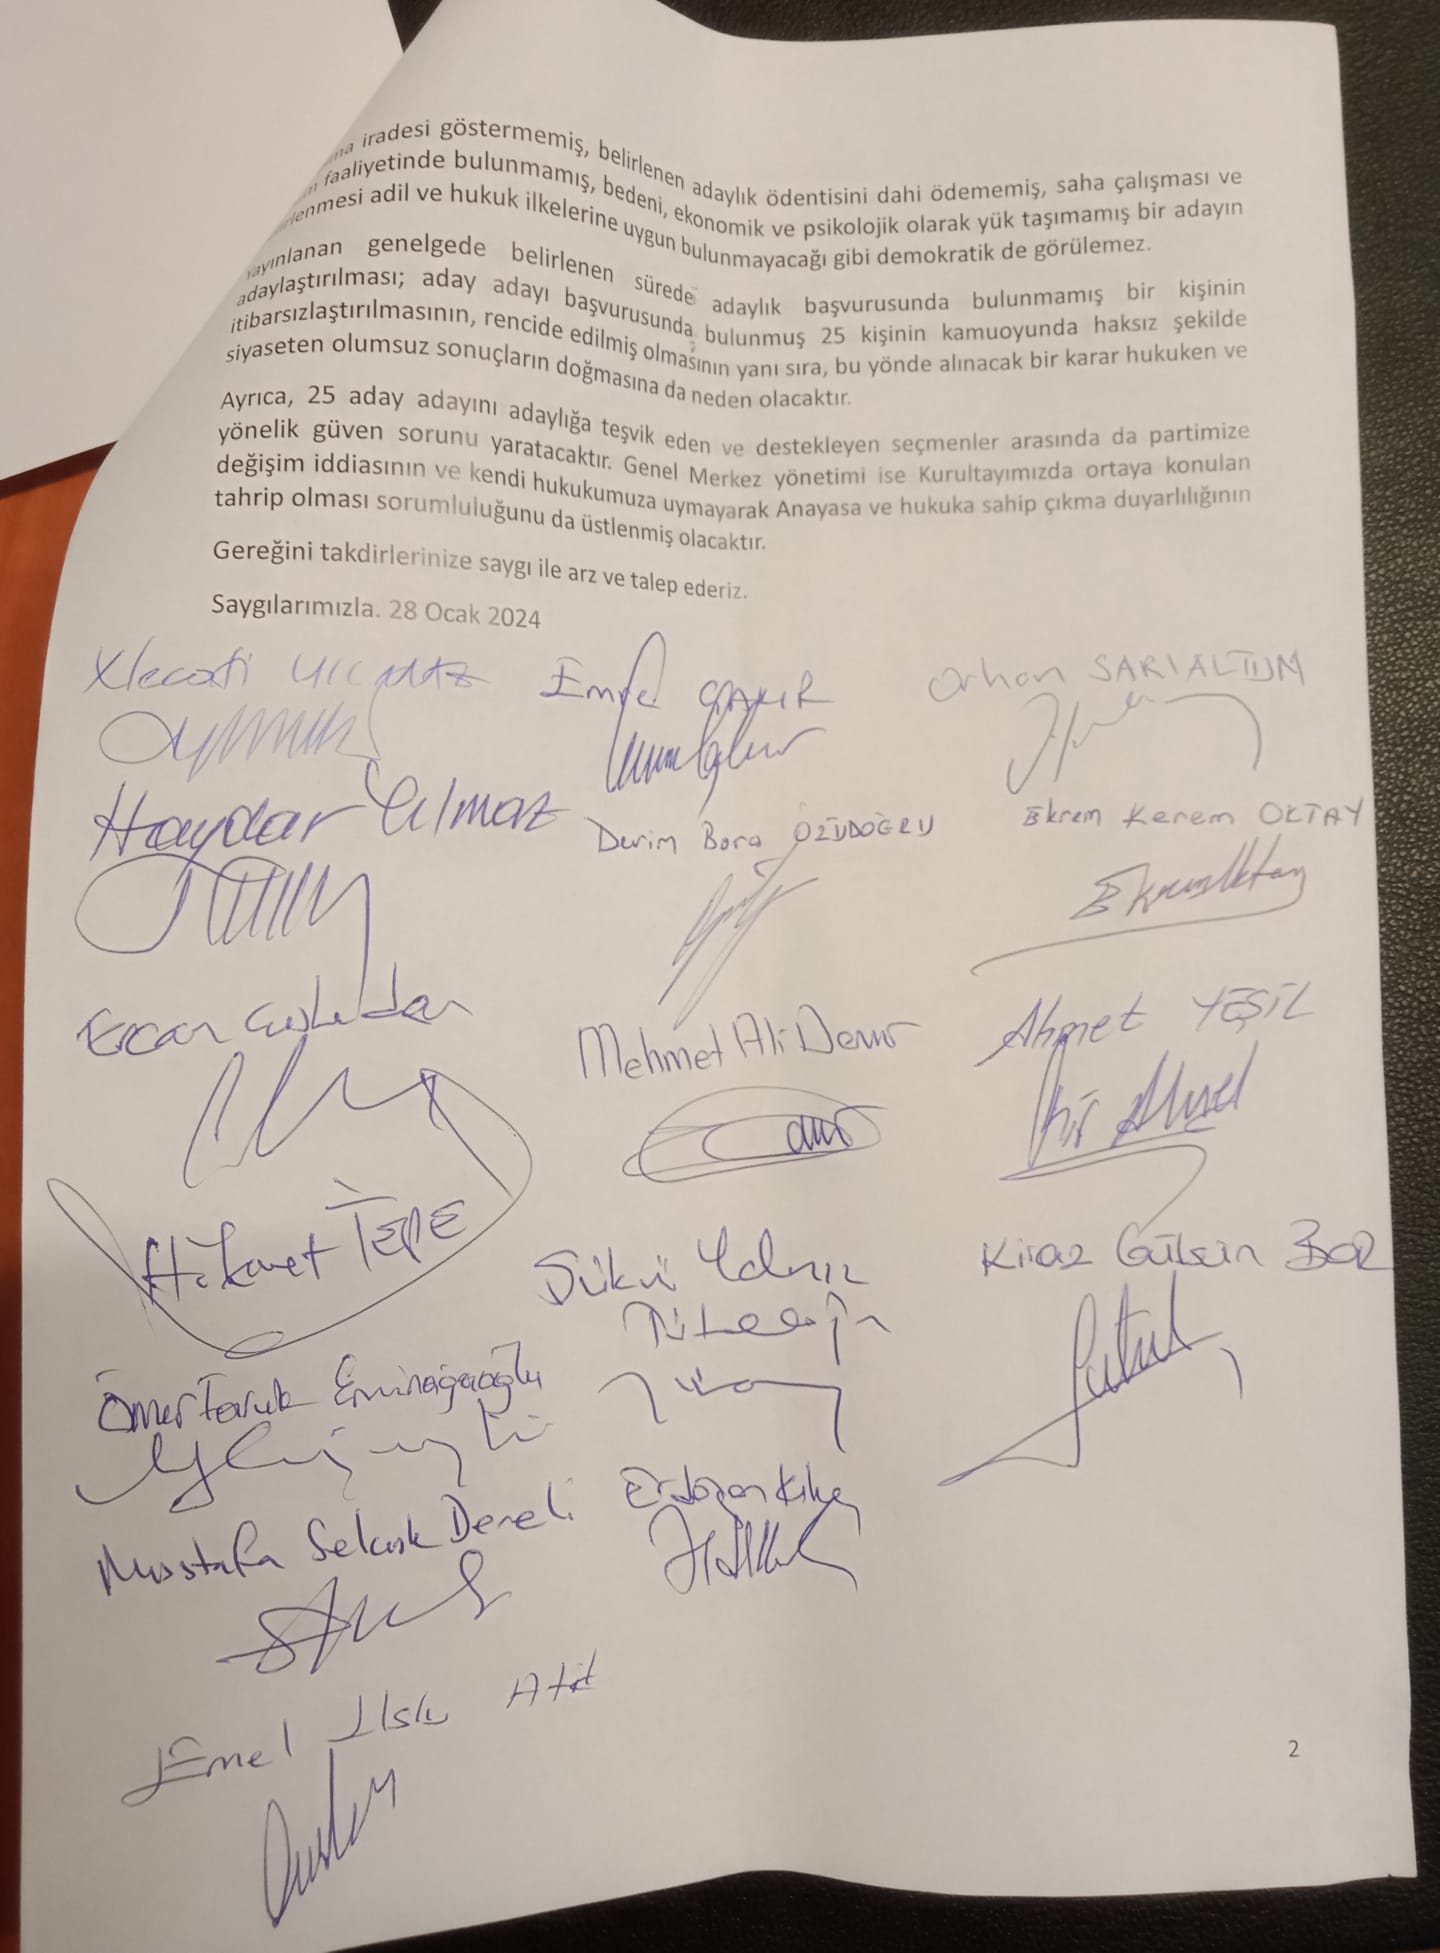 iradesi göstermemiş, belirlenen adaylık ödentisini dahi ödememiş, saha çalışması ve
faaliyetinde bulunmamış, bedeni, ekonomik ve psikolojik olarak yük taşımamış bir adayın
adil ve hukuk ilkelerine uygun bulunmayacağı gibi demokratik de görülemez.
yayınlanan genelgede belirlenen sürede adaylık başvurusunda bulunmamış bir kişinin
adaylaştırılması; aday adayı başvurusunda bulunmuş 25 kişinin kamuoyunda haksız şekilde
itibarsızlaştırılmasının, rencide edilmiş olmasının yanı sıra, bu yönde alınacak bir karar hukuken ve
siyaseten olumsuz sonuçların doğmasına da neden olacaktır.
Ayrıca, 25 aday adayını adaylığa teşvik eden ve destekleyen seçmenler arasında da partimize
yönelik güven sorunu yaratacaktır. Genel Merkez yönetimi ise Kurultayımızda ortaya konulan
değişim iddiasının ve kendi hukukumuza uymayarak Anayasa ve hukuka sahip çıkma duyarlılığının
tahrip olması sorumluluğunu da üstlenmiş olacaktır.
Gereğini takdirlerinize saygı ile arz ve talep ederiz.
Saygılarımızla. 28 Ocak 2024
Orhan SARIALTUN
Haydar Yılmaz
Derim Bora ÖZÜDOĞRU
Ekrem Kerem OKTAY
Ercan
Mehmet Ali Demir
Ahmet YEŞİL
Hikmet TEPE
Kiraz Gülsün BOR
Ömer Faruk Eminağaoğlu
Erdoğan Kılıç
Mustafa Selçuk Dereli
Emel
2